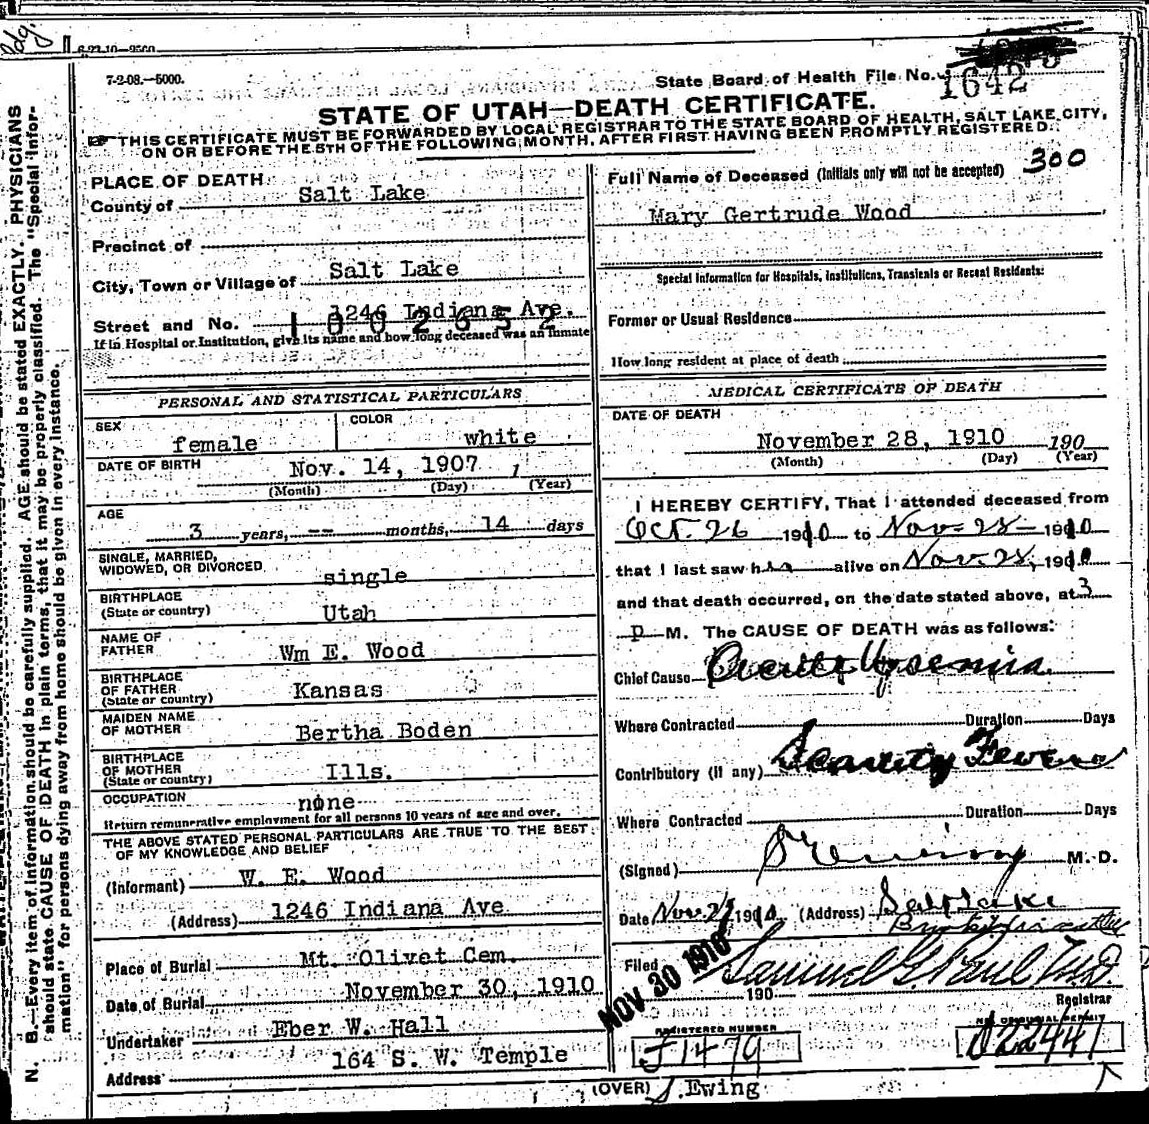 6-23-10—2500
7-2-08.—5000.
State Board of Health File No.
1642
STATE OF UTAH—DEATH CERTIFICATE.
THIS CERTIFICATE MUST BE FORWARDED BY LOCAL REGISTRAR TO THE STATE BOARD OF HEALTH, SALT LAKE CITY,
ON OR BEFORE THE 5TH OF THE FOLLOWING MONTH, AFTER FIRST HAVING BEEN PROMPTLY REGISTERED.
N. B.—Every item of information should be carefully supplied. AGE should be stated EXACTLY. PHYSICIANS
should state CAUSE OF DEATH in plain terms, that it may be properly classified. The "Special Infor-
mation" for persons dying away from home should be given in every instance.
PLACE OF DEATH
County of Salt Lake
Precinct of
City, Town or Village of Salt Lake
Street and No. 1246 Indiana Ave.
1002652
If in Hospital or Institution, give its name and how long deceased was an Inmate
PERSONAL AND STATISTICAL PARTICULARS
SEX female COLOR white
DATE OF BIRTH Nov. 14, 1907 1
(Month) (Day) (Year)
AGE 3 years, -- months, 14 days
SINGLE, MARRIED,
WIDOWED, OR DIVORCED single
BIRTHPLACE
(State or country) Utah
NAME OF
FATHER Wm E. Wood
BIRTHPLACE
OF FATHER Kansas
(State or country)
MAIDEN NAME
OF MOTHER Bertha Boden
BIRTHPLACE
OF MOTHER Ills.
(State or country)
OCCUPATION none
Return remunerative employment for all persons 10 years of age and over.
THE ABOVE STATED PERSONAL PARTICULARS ARE TRUE TO THE BEST
OF MY KNOWLEDGE AND BELIEF
(Informant) W. E. Wood
(Address) 1246 Indiana Ave
Place of Burial Mt. Olivet Cem.
Date of Burial November 30, 1910
Undertaker Eber W. Hall
Address 164 S. W. Temple
Full Name of Deceased (Initials only will not be accepted) 300
Mary Gertrude Wood
Special Information for Hospitals, Institutions, Transients or Recent Residents:
Former or Usual Residence
How long resident at place of death
MEDICAL CERTIFICATE OF DEATH
DATE OF DEATH
November 28, 1910 190
(Month) (Day) (Year)
I HEREBY CERTIFY, That I attended deceased from
Oct. 26 1910 to Nov- 28- 1910
that I last saw her alive on Nov. 28, 1910
and that death occurred, on the date stated above, at 3
p M. The CAUSE OF DEATH was as follows:
Chief Cause Acute Uremia
Where Contracted Duration Days
Contributory (if any) Scarlet Fever
Where Contracted Duration Days
(Signed) S Ewing M. D.
Date Nov. 29 1910 (Address) Salt Lake
Filed NOV 30 1910 190
Samuel G. Paul M.D.
Registrar
REGISTERED NUMBER
J1479
NO. OF BURIAL PERMIT
D22441
(OVER) S. Ewing